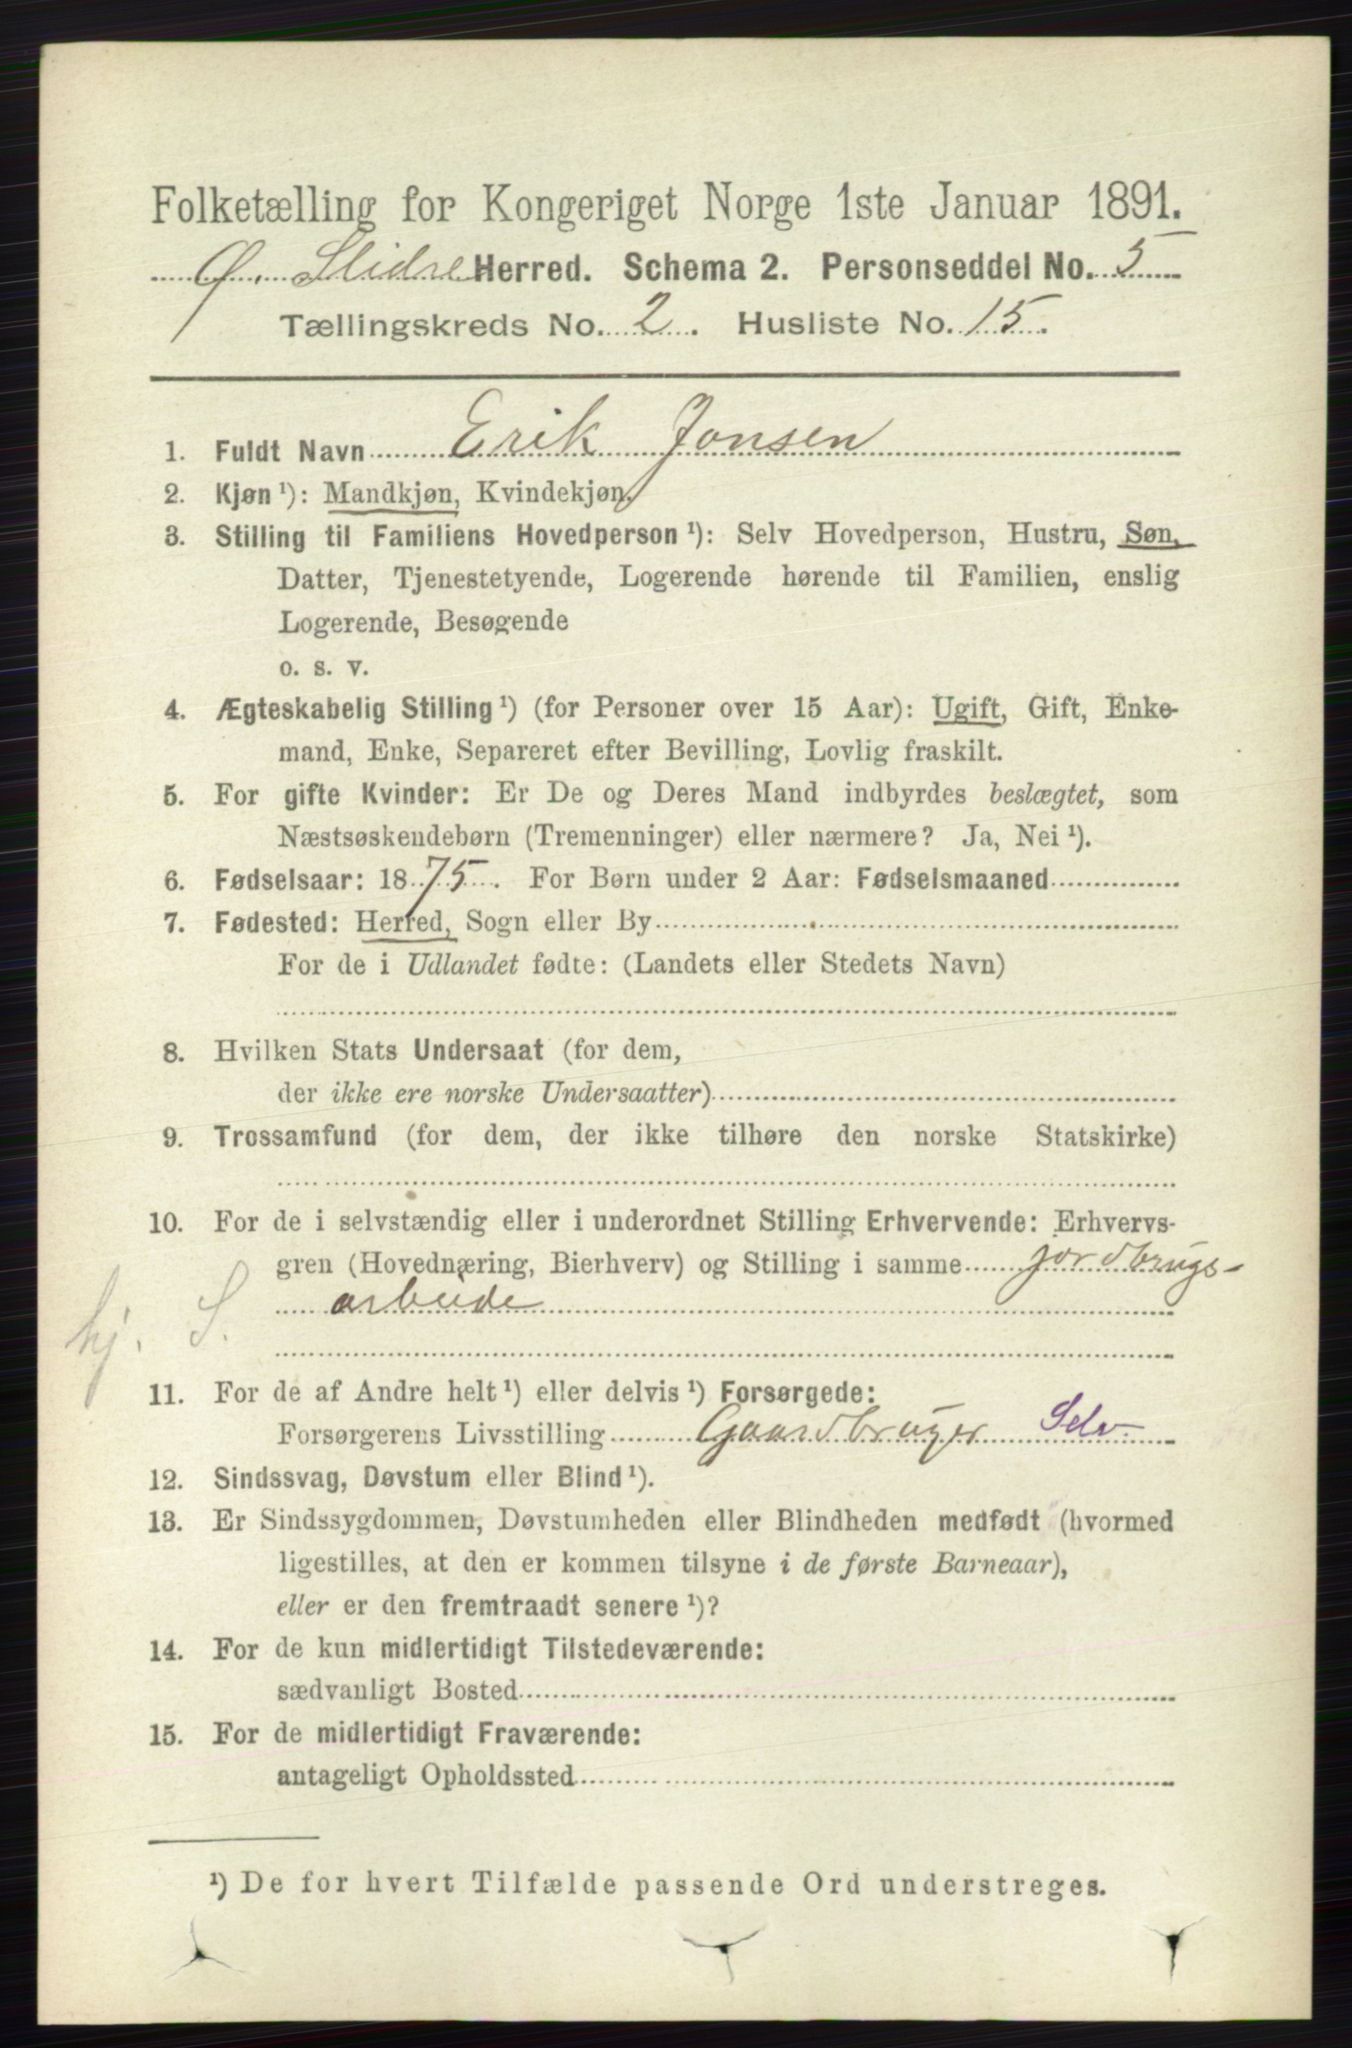 Folketælling for Kongeriget Norge 1ste Januar 1891.
Ø. Slidre Herred. Schema 2. Personseddel No. 5
Tællingskreds No. 2. Husliste No. 15.
1. Fuldt Navn Erik Jonsen
2. Kjøn ¹): Mandkjøn, Kvindekjøn.
3. Stilling til Familiens Hovedperson ¹): Selv Hovedperson, Hustru, Søn,
Datter, Tjenestetyende, Logerende hørende til Familien, enslig
Logerende, Besøgende
o. s. v.
4. Ægteskabelig Stilling ¹) (for Personer over 15 Aar): Ugift, Gift, Enke-
mand, Enke, Separeret efter Bevilling, Lovlig fraskilt.
5. For gifte Kvinder: Er De og Deres Mand indbyrdes beslægtet, som
Næstsøskendebørn (Tremenninger) eller nærmere? Ja, Nei ¹).
6. Fødselsaar: 1875. For Børn under 2 Aar: Fødselsmaaned
7. Fødested: Herred, Sogn eller By
For de i Udlandet fødte: (Landets eller Stedets Navn)
8. Hvilken Stats Undersaat (for dem,
der ikke ere norske Undersaatter)
9. Trossamfund (for dem, der ikke tilhøre den norske Statskirke)
10. For de i selvstændig eller i underordnet Stilling Erhvervende: Erhvervs-
gren (Hovednæring, Bierhverv) og Stilling i samme jordbrugs-
arbeide
hj. S.
11. For de af Andre helt ¹) eller delvis ¹) Forsørgede:
Forsørgerens Livsstilling Gaardbruger Selv.
12. Sindssvag, Døvstum eller Blind ¹).
13. Er Sindssygdommen, Døvstumheden eller Blindheden medfødt (hvormed
ligestilles, at den er kommen tilsyne i de første Barneaar),
eller er den fremtraadt senere ¹)?
14. For de kun midlertidigt Tilstedeværende:
sædvanligt Bosted
15. For de midlertidigt Fraværende:
antageligt Opholdssted
¹) De for hvert Tilfælde passende Ord understreges.